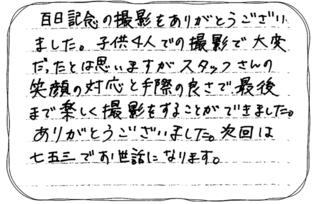 百日記念の撮影をありがとうござい
ました。子供4人での撮影で大変
だったとは思いますがスタッフさんの
笑顔の対応と手際の良さで、最後
まで楽しく撮影をすることができました。
ありがとうございました。次回は
七五三でお世話になります。